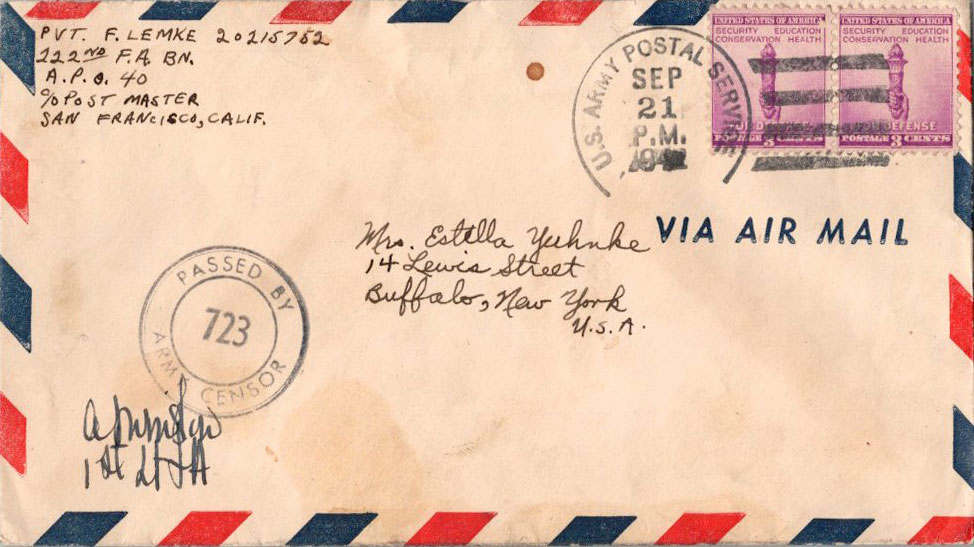 PVT. F. LEMKE 20215752
222ND F.A. BN.
A.P.O. 40
C/O POST MASTER
SAN FRANCISCO, CALIF.
U.S. ARMY POSTAL SERVICE
SEP
21
P.M.
UNITED STATES OF AMERICA
SECURITY EDUCATION
CONSERVATION HEALTH
POSTAGE 3 CENTS
UNITED STATES OF AMERICA
SECURITY EDUCATION
CONSERVATION HEALTH
DEFENSE
POSTAGE 3 CENTS
VIA AIR MAIL
Mrs. Estella Yuhnke
14 Lewis Street
Buffalo, New York
U.S.A.
PASSED BY
723
ARMY CENSOR
1st Lt FA